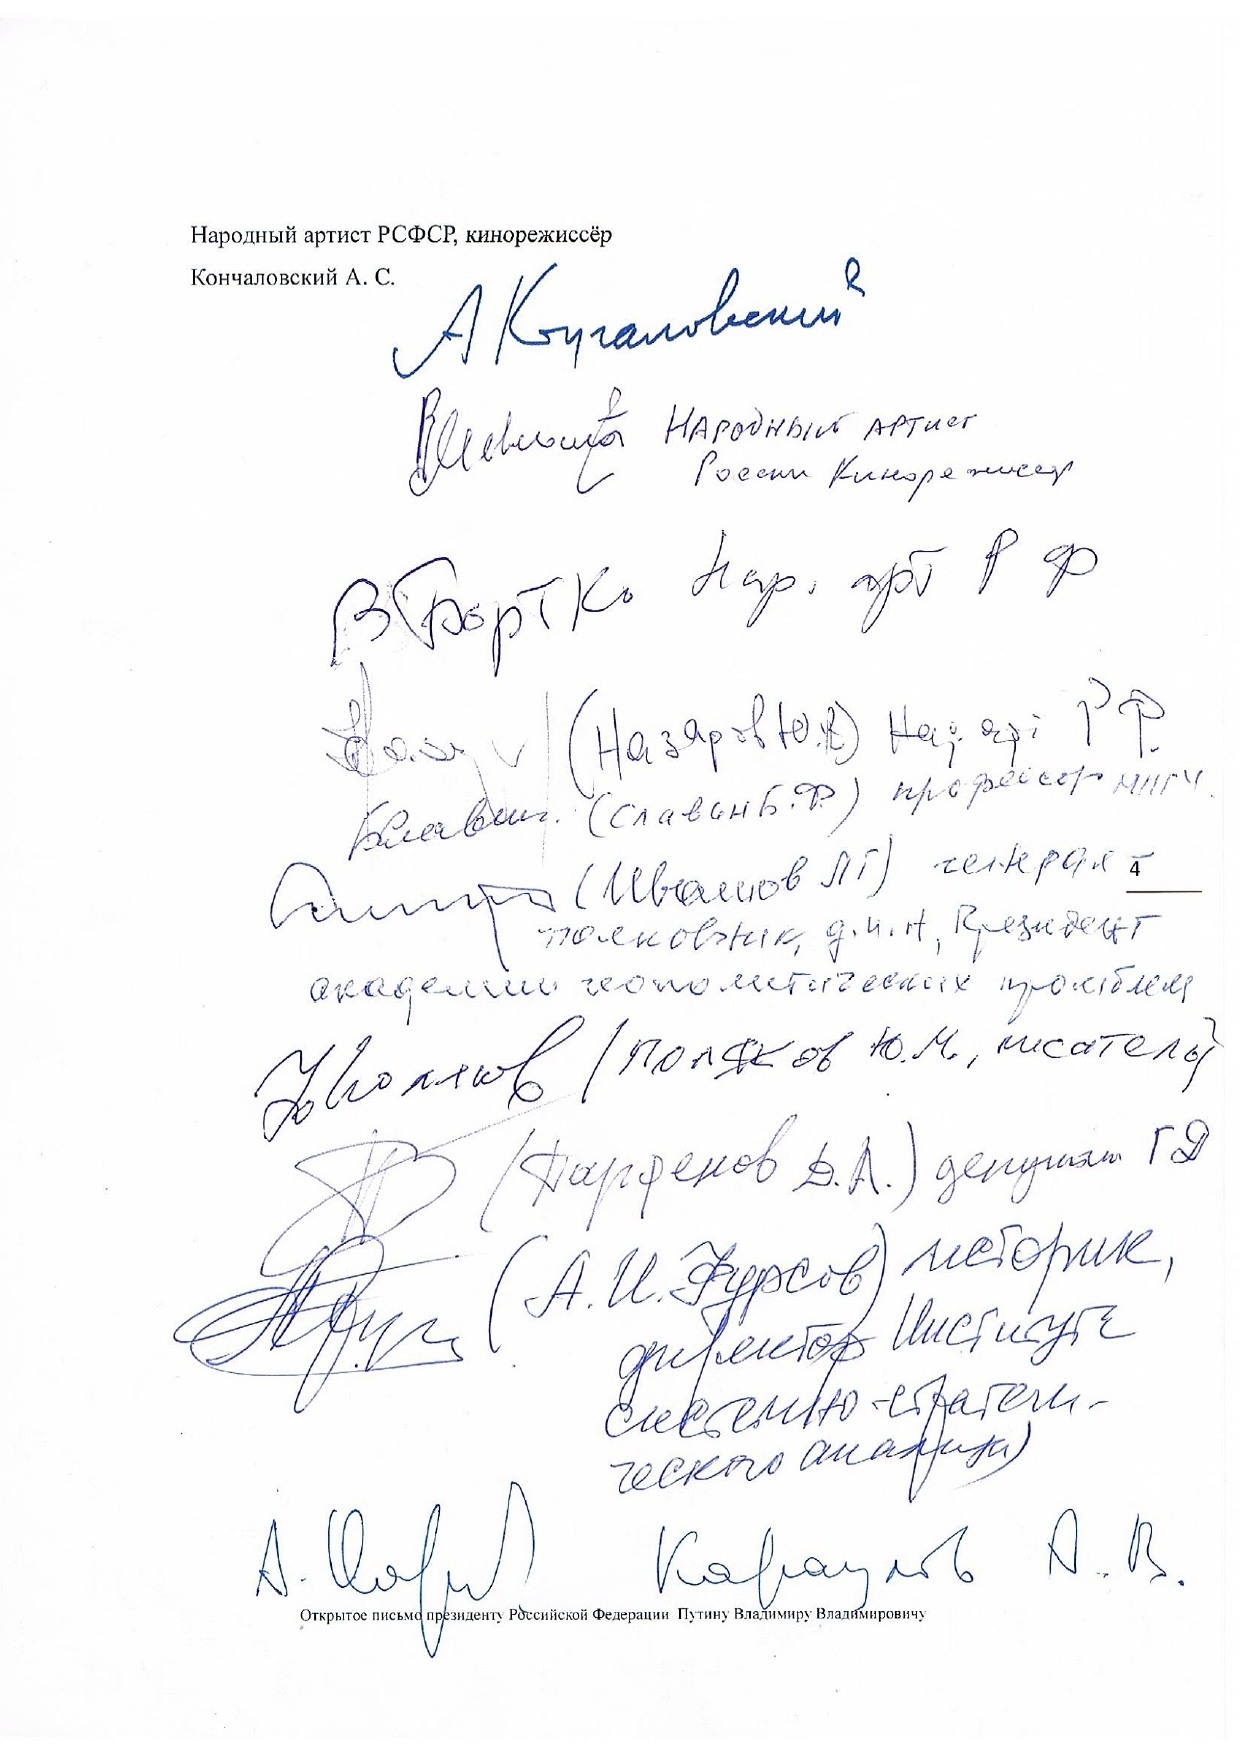 Народный артист РСФСР, кинорежиссёр
Кончаловский А. С.
АКончаловский
Народный артист
России Кинорежиссер
ВБортко Нар. арт РФ
(Назаров Ю.В) Нар. арт РФ.
БСлавин. (Славин Б.Ф.) профессор МПГУ.
(Ивашов ЛГ) генерал-
4
полковник, д.и.н, Президент
академии геополитических проблем
ЮПоляков (Поляков Ю.М., писатель)
(Парфенов Д.А.) депутат ГД
(А.И.Фурсов) историк,
директор Института
системно-стратеги-
ческого анализа)
А. Караулов А.В.
Открытое письмо президенту Российской Федерации Путину Владимиру Владимировичу